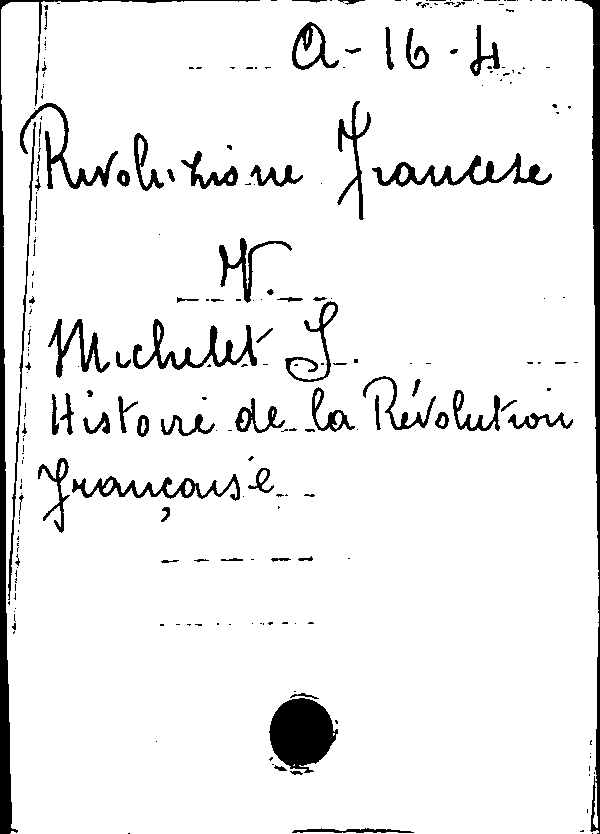 A-16-4
Rivoluzione Francese
V.
Michelet J.
Histoire de la Révolution
française